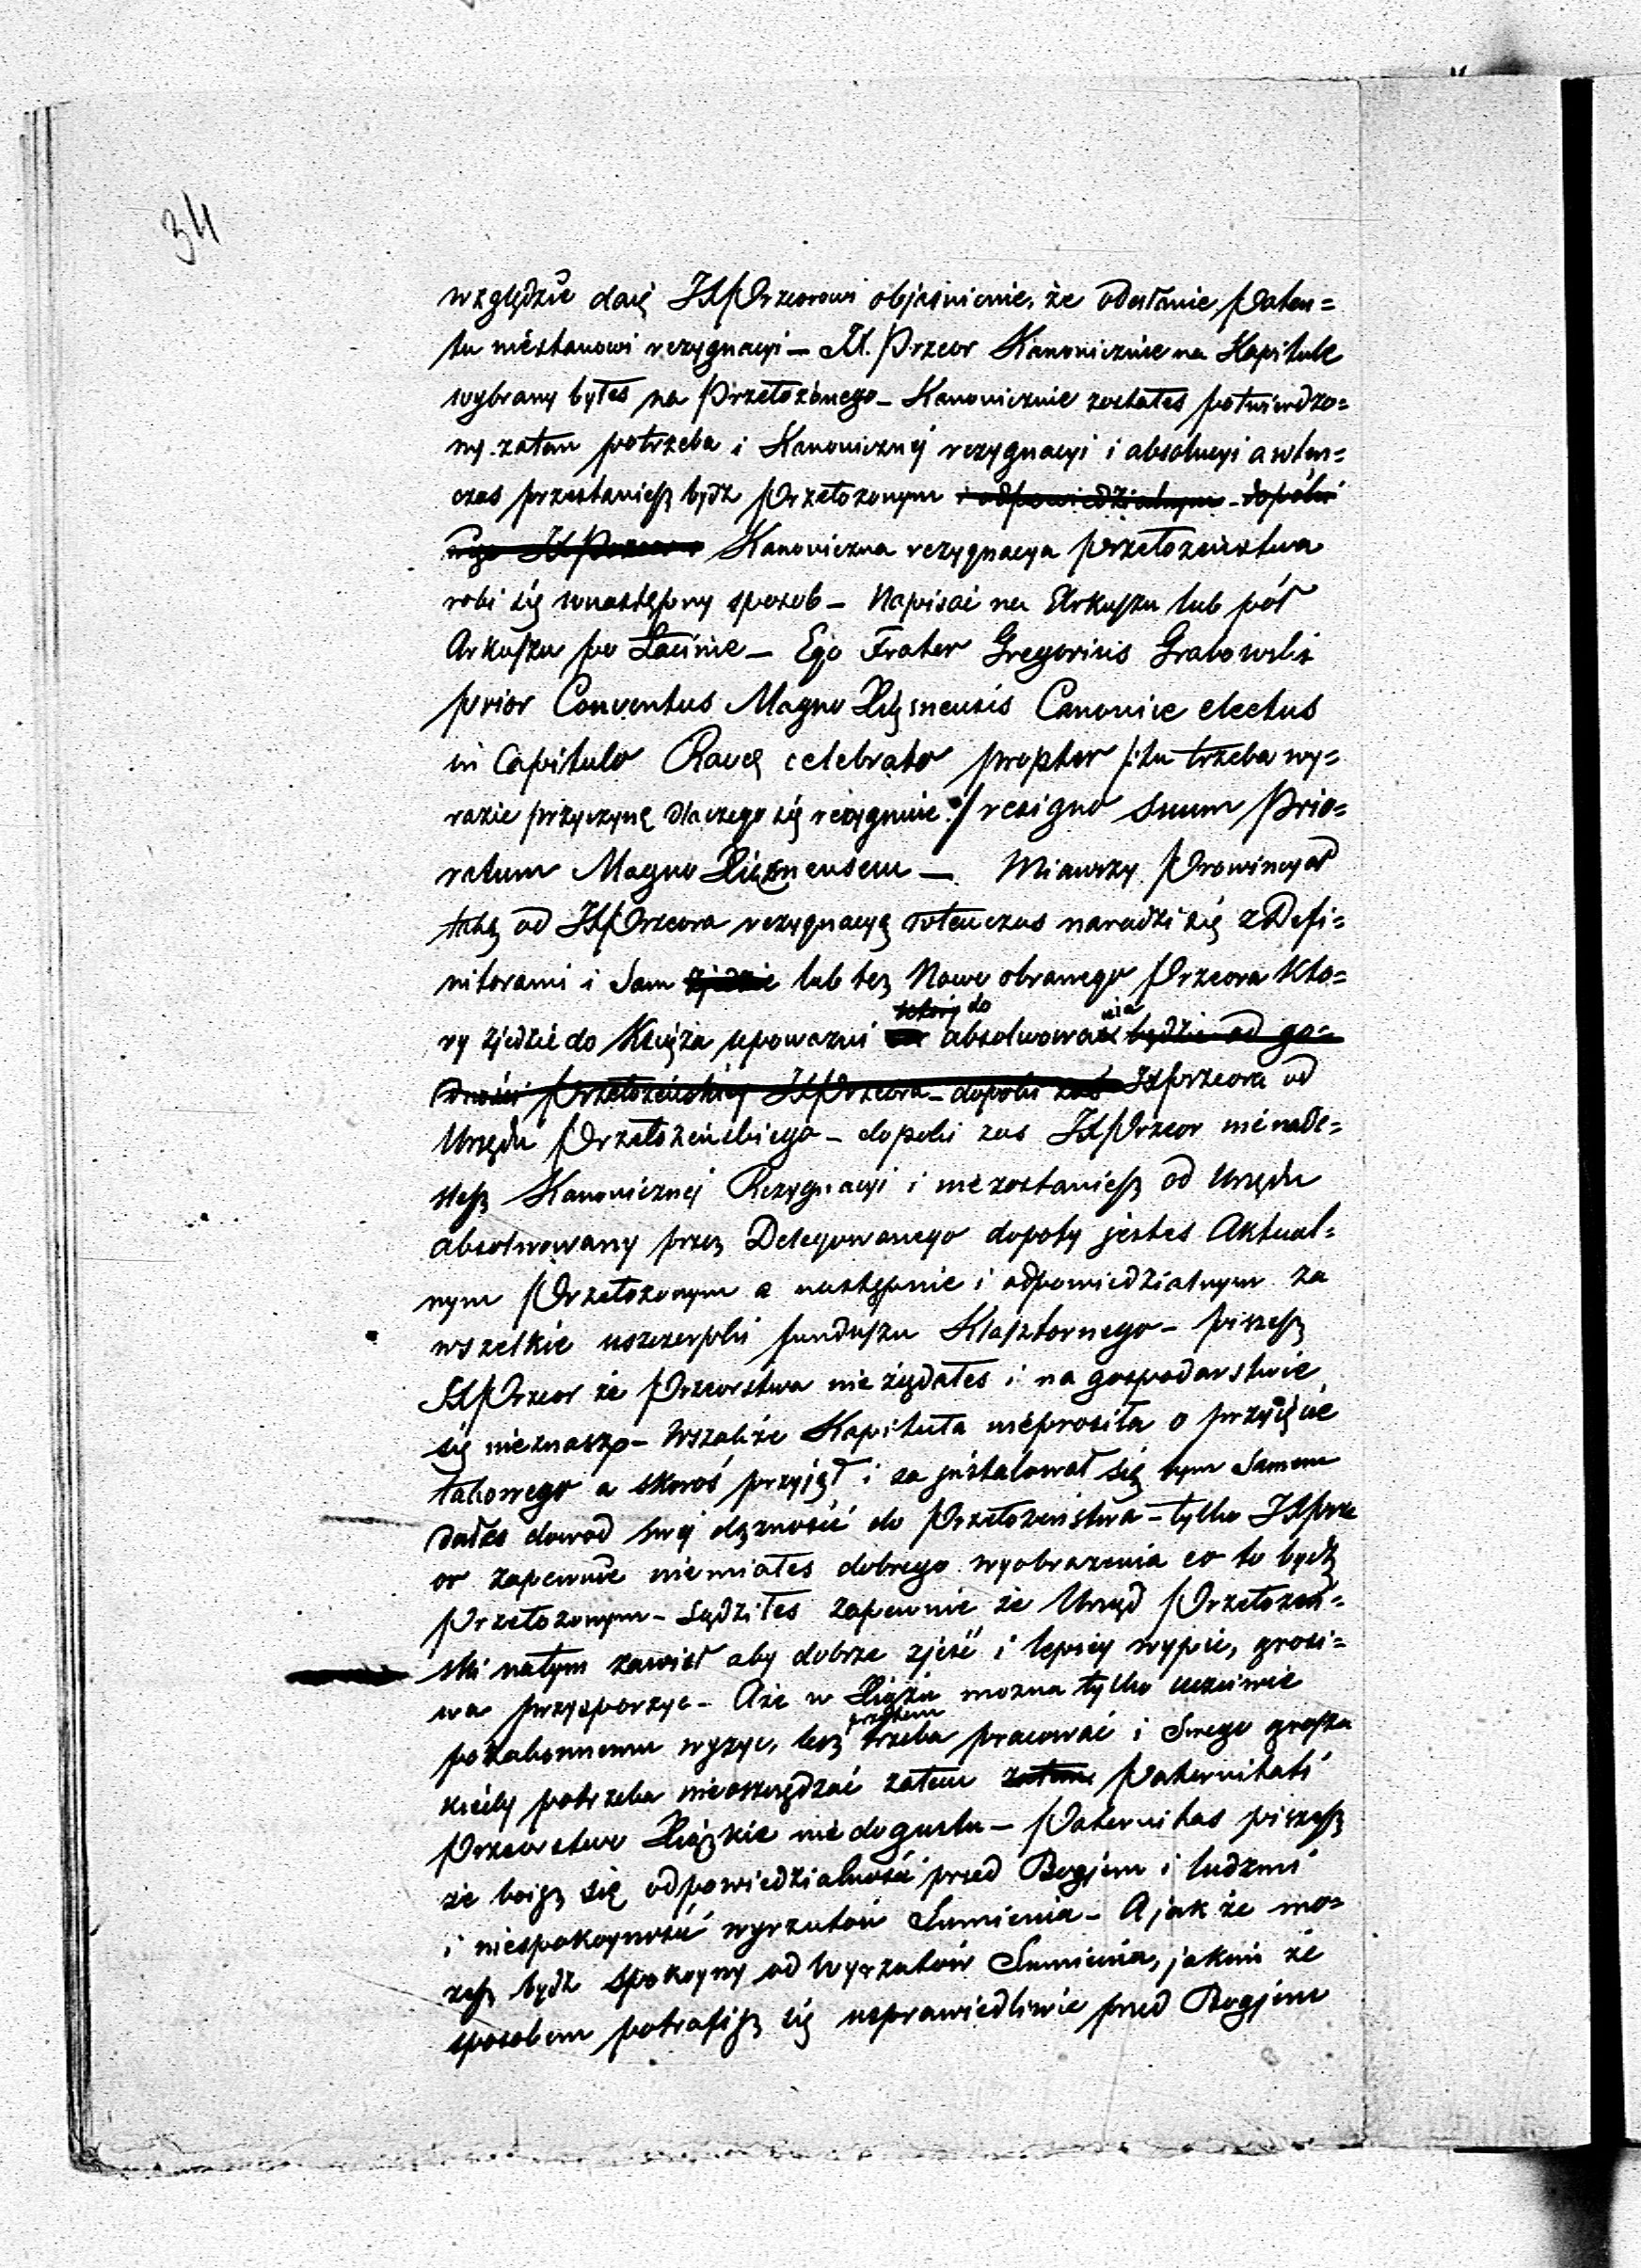 34
względzie daię JX Przeorowi objaśnienie, że odesłanie Paten=
tu niestanowi rezygnacyi — JX. Przeor Kanonicznie na Kapitule
wybrany byłeś na Przełożonego — Kanonicznie zostałes potwierdzo=
ny. zatem potrzeba i Kanonicznéj rezygnacyi i absolucyi a wten=
czas przestaniesz bydź Przełożonym i odpowiedzialnym — dopóki
Kanoniczna rezygnacya Przełożeństwa
robi się wnastępny sposob — Napisać na Arkuszu lub pół
Arkuszu po Łacinie — Ego Frater Gregorius Grabowski
prior Conventus Magno Xiąsnensis Canonice electus
in Capitulo Ravę celebrato propter /:tu trzeba wy=
razic przyczynę dlaczego się rezygnuie:/ resigno suum Prio=
ratum Magno Xiąsnensem — Miawszy Prowincyał
taką od JX Przeora rezygnacyę wtenczas naradzi się z Defi=
nitorami i Sam zjedzie lub tez Nowo obranego Przeora Kto=
ry zjedzie do Książa upowazni do absolwowania będzie od go=
dności Przełożeńskiéj JX Przeora — dopoki zaś JX Przeora od
Urzędu Przełożeńskiego — dopoki zas JX Przeor nie nade=
słesz Kanonicznéj Rezygnacyi i nie zostaniesz od Urzędu
absolwowany przez Delegowanego dopoty jestes Aktual=
nym Przełożonym a następnie i odpowiedzialnym za
wszelkie uszczerpki funduszu Klasztornego — piszesz
JX Przeor że Przeorstwa nie żądałes i na gospodarstwie
się nieznasz — Wszakże Kapituła nieprosiła o przyięcie
takowego a skoroś przyjął i za jnstalował się tym Samem
dałes dowod swéj dążności do Przełożeństwa — tylko JX Prze
or zapewnie niemiałes dobrego wyobrazenia co to bydź
Przełożonym — Sądziłes zapewnie że Urząd Przełożeń=
ski natym zawisł aby dobrze zjeść i lepiéy wypic, grosi=
wa przysporzyc — Aże w Xiążu mozna tylko uczciwie
pozakonnemu wyzyc, lecz przytem trzeba pracować i Swego grosza
kiedy potrzeba nieoszczędzać zatem zatem Paternitati
Przeorstwo Xiązkie nie do gustu — Paternitas piszesz
że boisz się odpowiedzialności przed Bogiem i ludzmi
i niespokoyność wyrzutów Sumienia — A jak że mo=
zesz bydź spokoyny od Wyrzutów Sumienia, jakim że
sposobem potrafisz się usprawiedliwic przed Bogjem